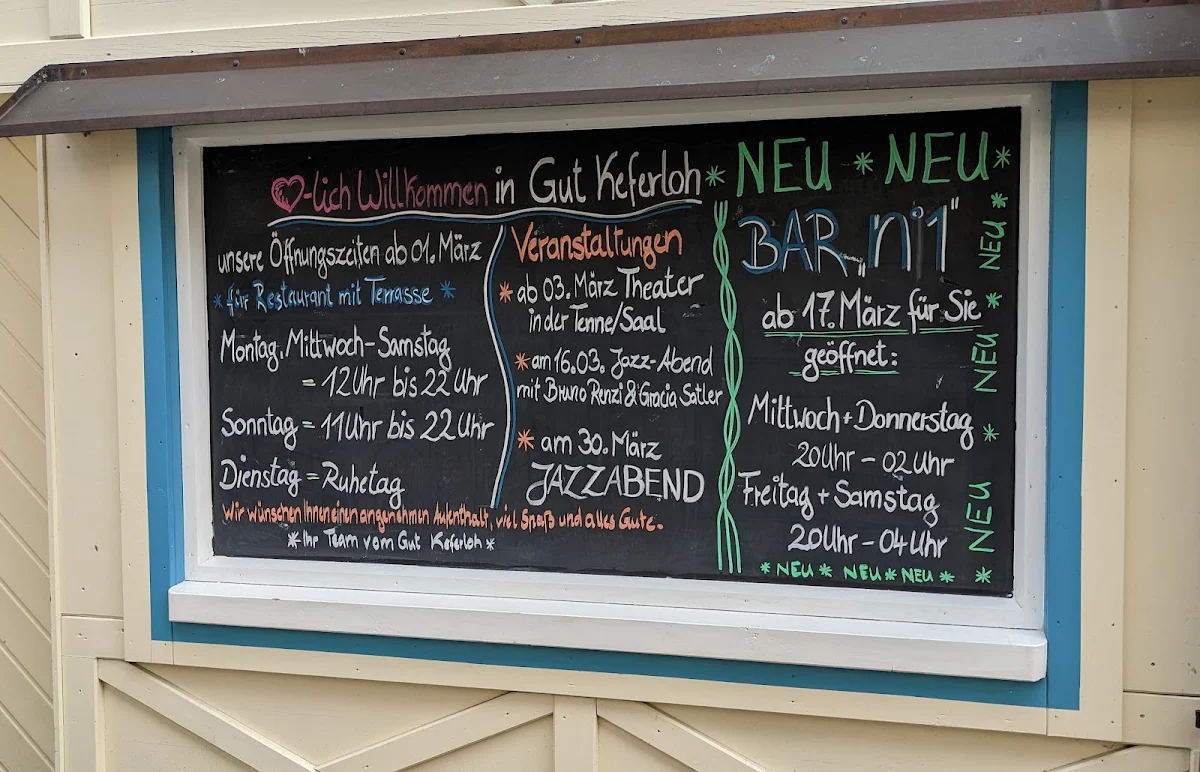 ♡-lich Willkommen in Gut Keferloh
unsere Öffnungszeiten ab 01. März
* für Restaurant mit Terrasse *
Montag, Mittwoch-Samstag
= 12 Uhr bis 22 Uhr
Sonntag = 11 Uhr bis 22 Uhr
Dienstag = Ruhetag
Veranstaltungen
* ab 03. März Theater
in der Tenne/Saal
* am 16.03. Jazz-Abend
mit Bruno Renzi & Gracia Satler
* am 30. März
JAZZABEND
Wir wünschen Ihnen einen angenehmen Aufenthalt, viel Spaß und alles Gute.
* Ihr Team vom Gut Keferloh *
* NEU * NEU *
BAR „n°1"
ab 17. März für Sie
geöffnet:
Mittwoch + Donnerstag
20 Uhr - 02 Uhr
Freitag + Samstag
20 Uhr - 04 Uhr
* NEU * NEU * NEU * *
* NEU * NEU * NEU